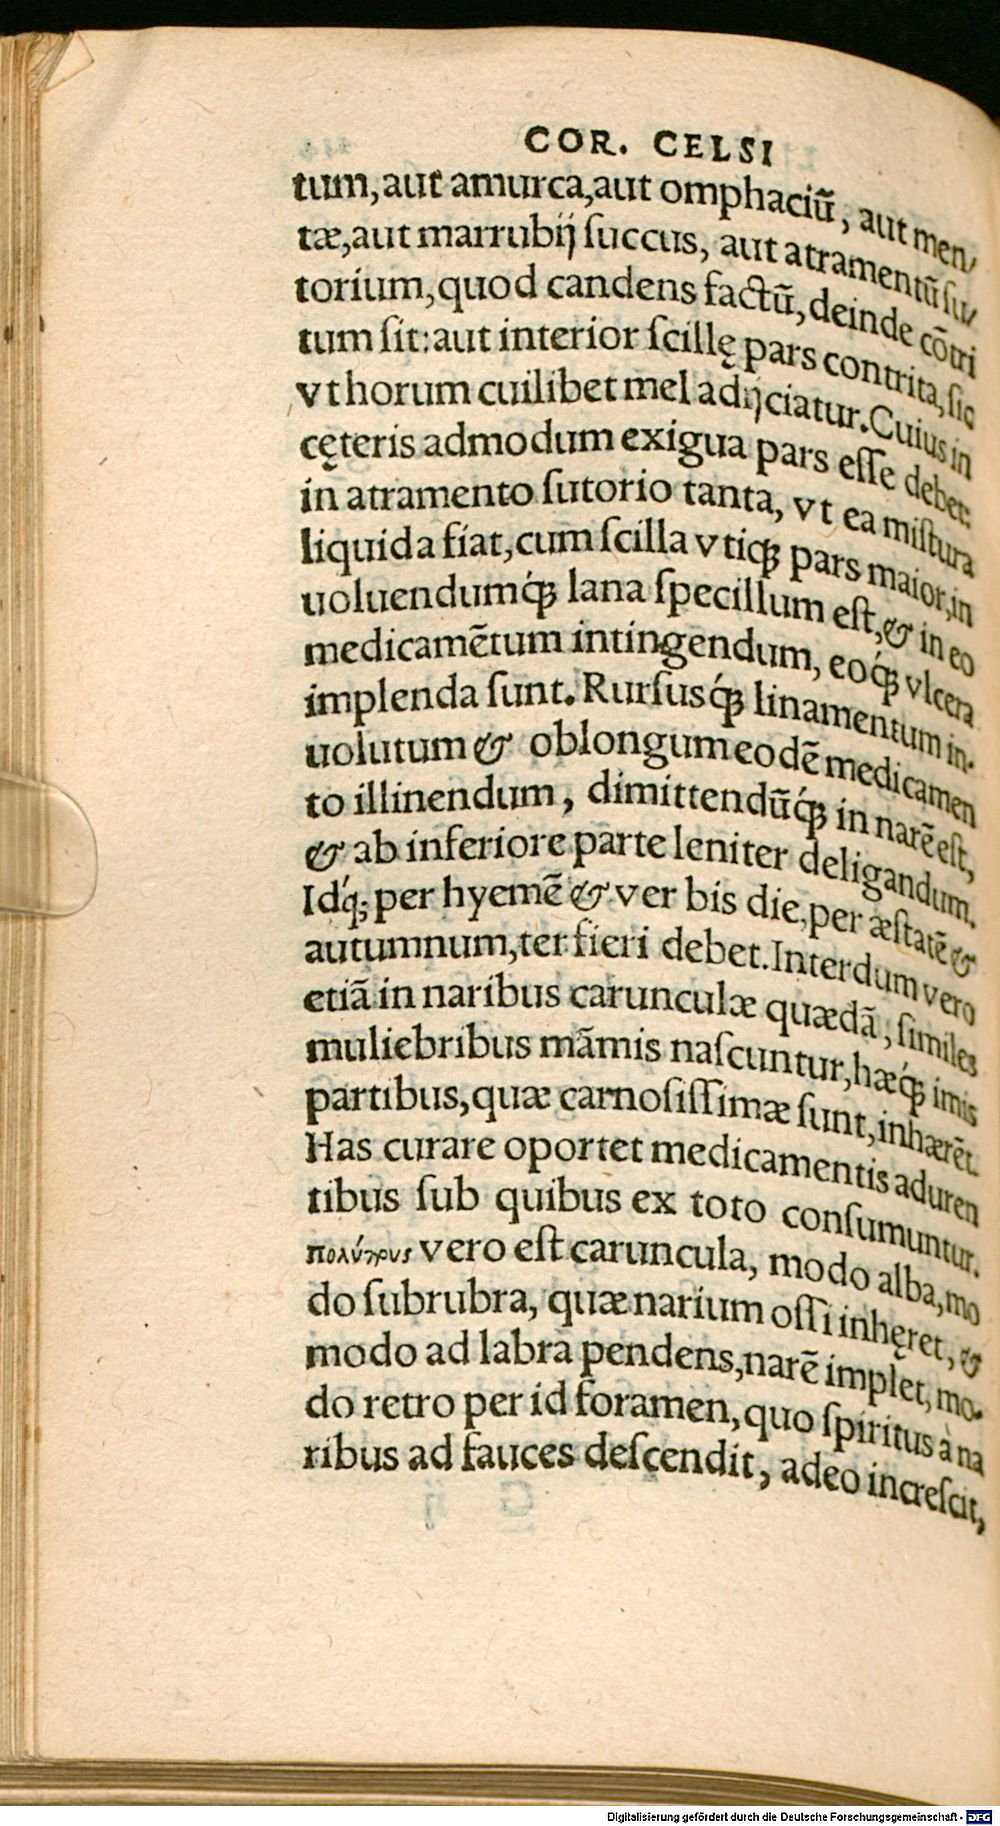 COR. CELSI
tum, aut amurca, aut omphaciũ, aut men/
tæ, aut marrubij ſuccus, aut atramentũ ſu/
torium, quod candens factũ, deinde cõtri
tum ſit: aut interior ſcillę pars contrita, ſic
vt horum cuilibet mel adijciatur. Cuius in
cęteris admodum exigua pars eſſe debet:
in atramento ſutorio tanta, vt ea miſtura
liquida fiat, cum ſcilla vtiqꝫ pars maior, in
uoluendumq́ꝫ lana ſpecillum eſt, & in eo
medicamẽtum intingendum, eoq́ꝫ vlcera
implenda ſunt. Rurſusq́ꝫ linamentum in-
uolutum & oblongum eodẽ medicamen
to illinendum, dimittendũq́ꝫ in narẽ eſt,
& ab inferiore parte leniter deligandum.
Idq́; per hyemẽ & ver bis die, per æſtatẽ &
autumnum, ter fieri debet. Interdum vero
etiã in naribus carunculæ quædã, ſimiles
muliebribus mãmis naſcuntur, hæq́ꝫ imis
partibus, quæ carnoſiſſimæ ſunt, inhærẽt.
Has curare oportet medicamentis aduren
tibus ſub quibus ex toto conſumuntur.
πολύπους vero eſt caruncula, modo alba, mo
do ſubrubra, quæ narium oſſi inhęret, &
modo ad labra pendens, narẽ implet, mo-
do retro per id foramen, quo ſpiritus à na
ribus ad fauces deſcendit, adeo increſcit,
Digitalisierung gefördert durch die Deutsche Forschungsgemeinschaft - DFG